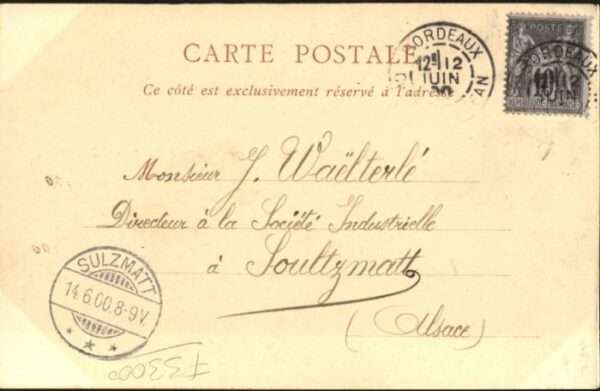 CARTE POSTALE
Ce côté est exclusivement réservé à l'adresse
BORDEAUX
12E 12
JUIN
POSTE
BORDEAUX
10
12
JUIN
Monsieur J. Waëlterlé
Directeur à la Société Industrielle
à Soultzmatt
(Alsace)
SULZMATT
14.6.00.8-9V.